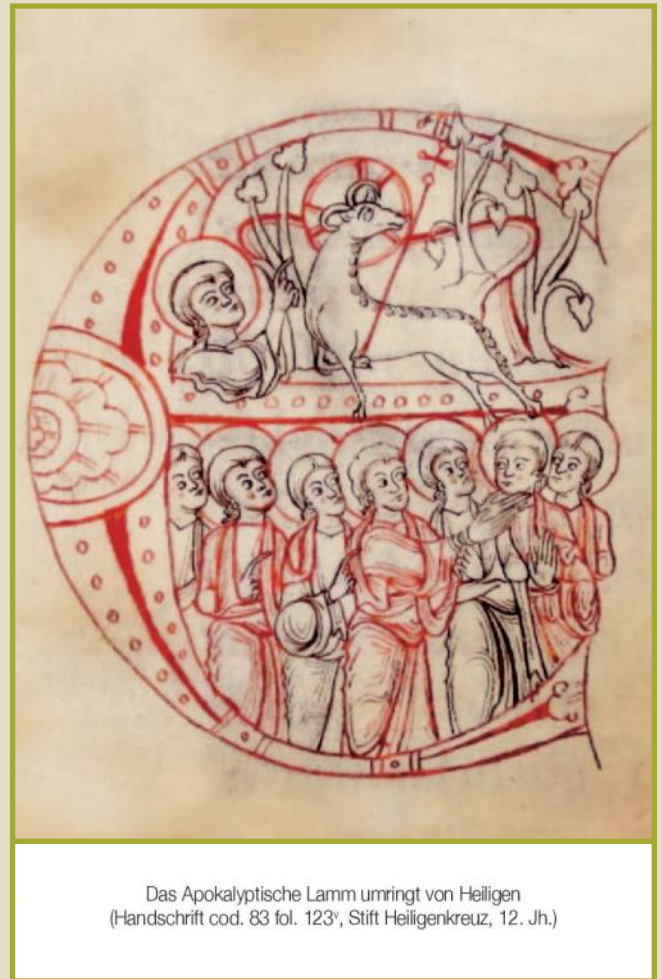 Das Apokalyptische Lamm umringt von Heiligen
(Handschrift cod. 83 fol. 123ᵛ, Stift Heiligenkreuz, 12. Jh.)